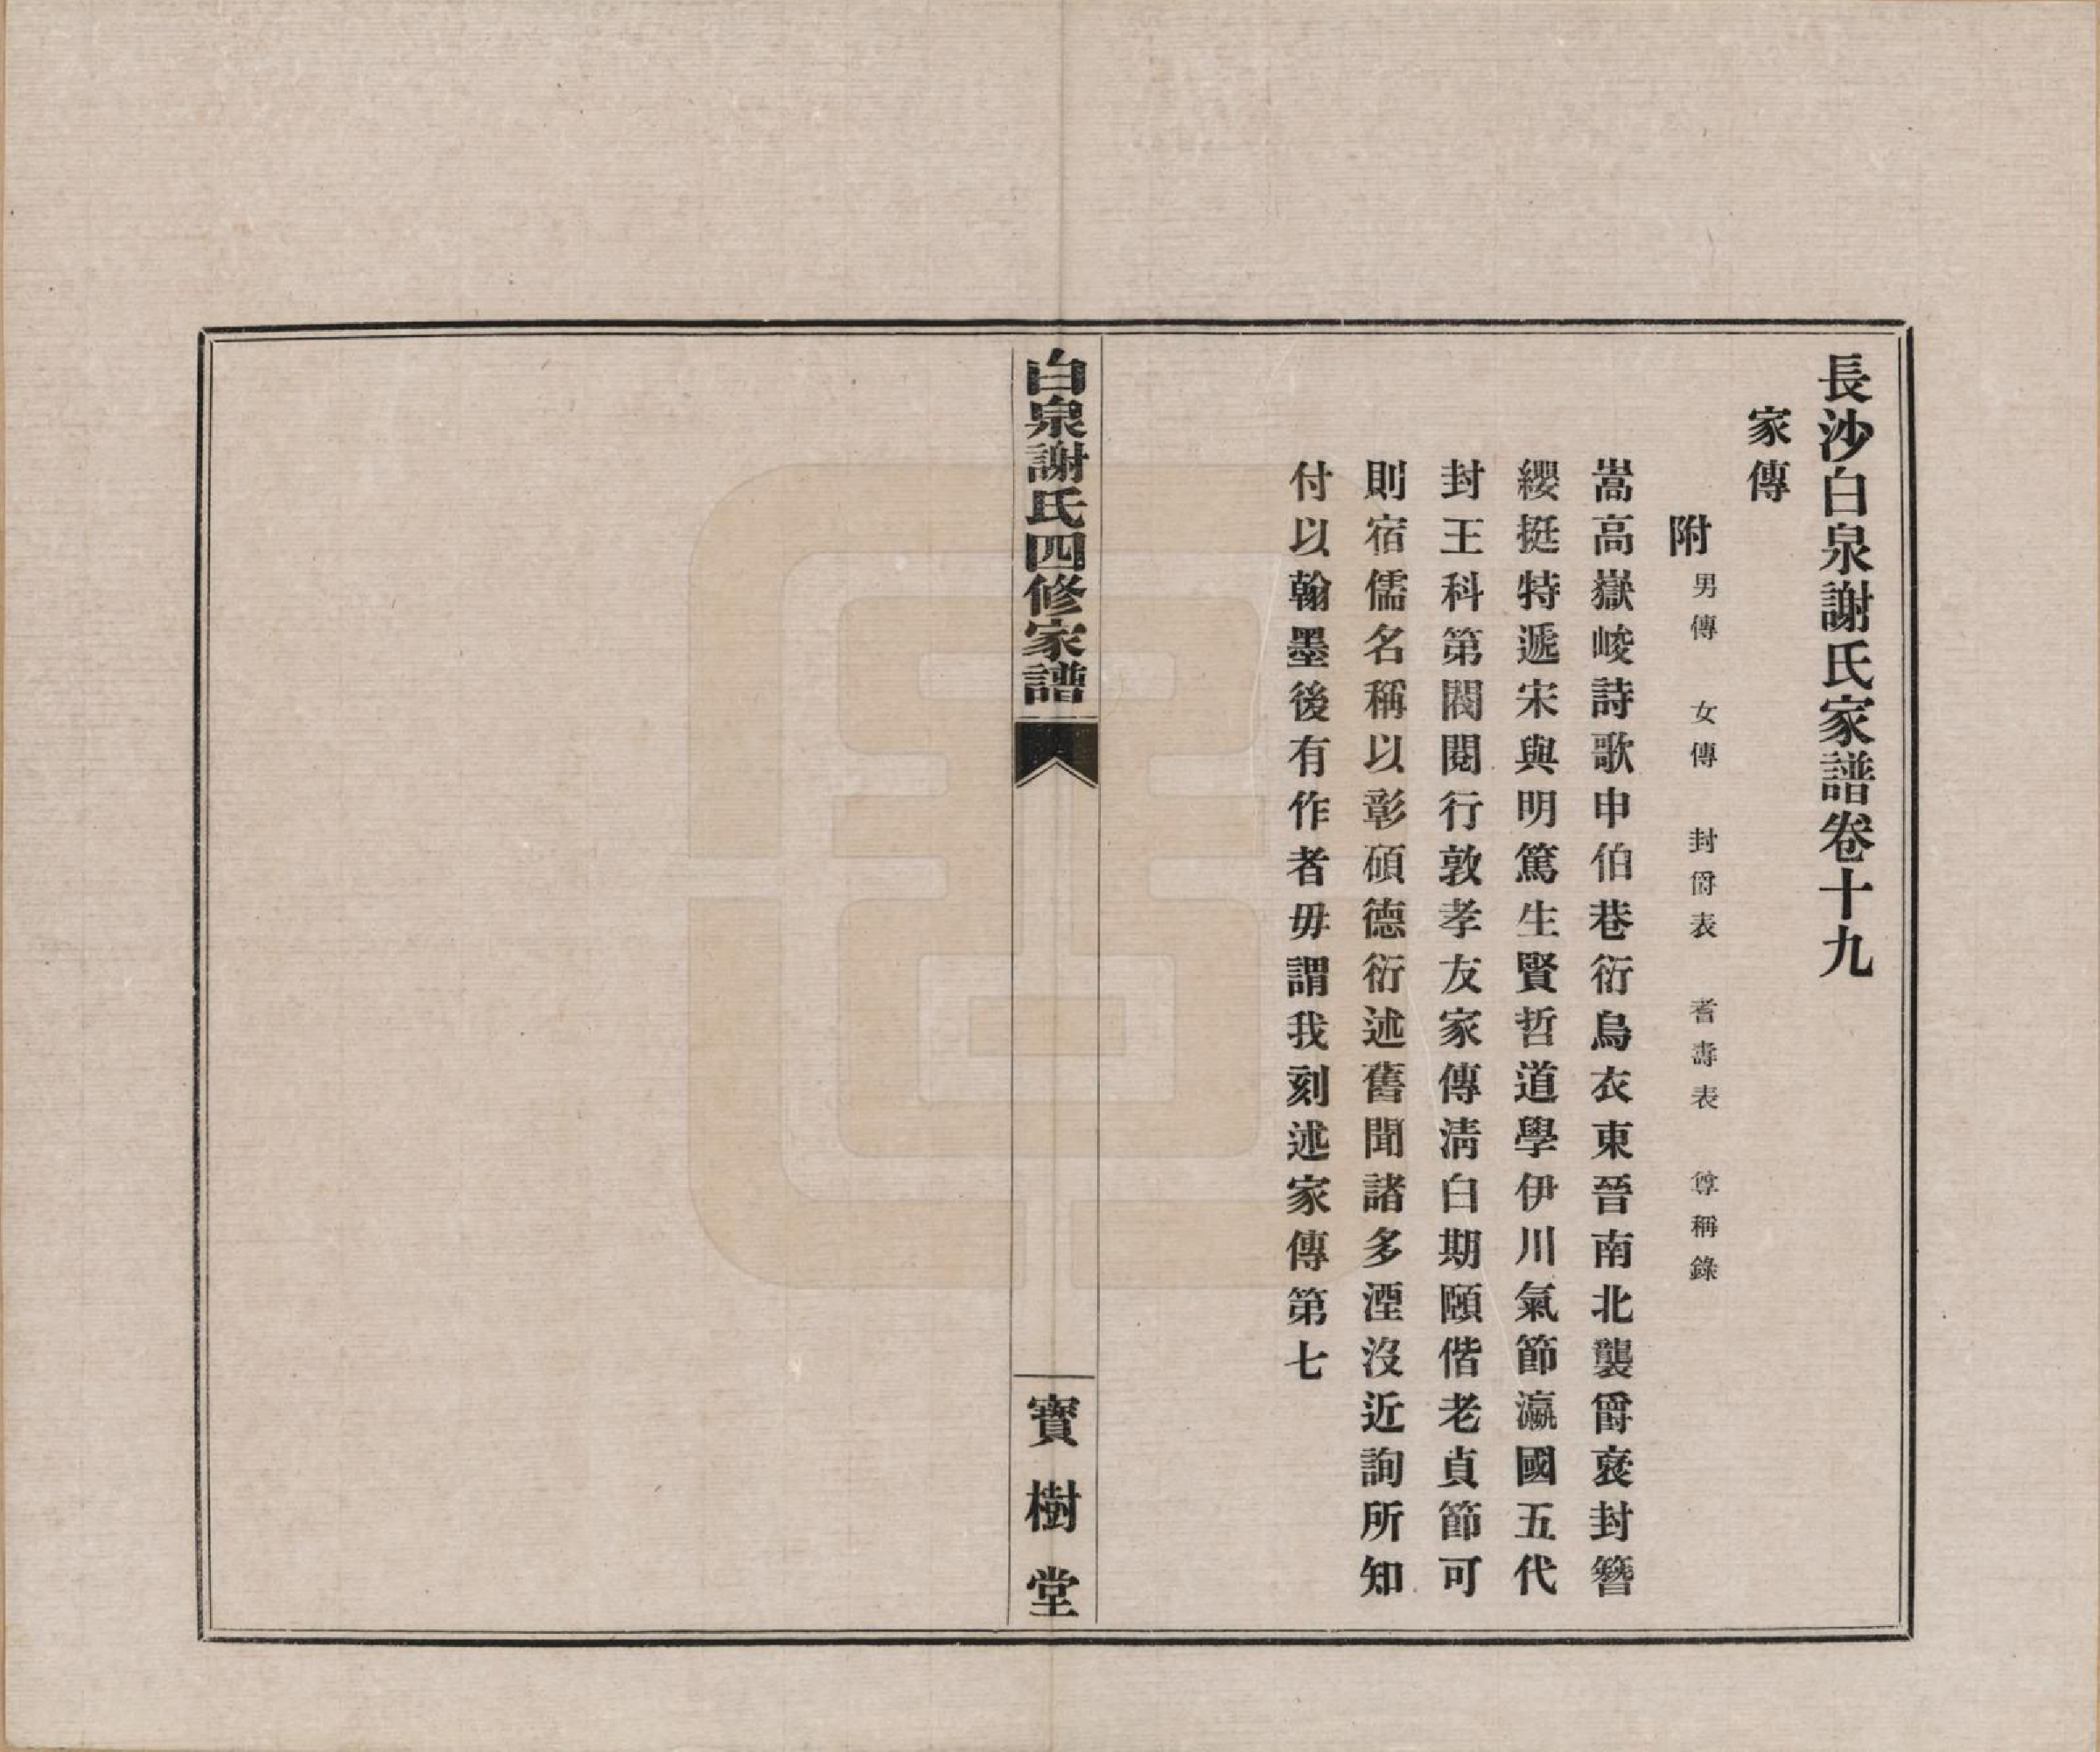 長沙白泉謝氏家譜卷十九
家傳
附男傳 女傳 封爵表 耆壽表 尊稱錄
嵩高嶽峻詩歌申伯巷衍烏衣東晉南北襲爵襃封簪
纓挺特遞宋與明篤生賢哲道學伊川氣節瀛國五代
封王科第閥閱行敦孝友家傳淸白期頤偕老貞節可
則宿儒名稱以彰碩德衍述舊聞諸多湮沒近詢所知
付以翰墨後有作者毋謂我刻述家傳第七
白泉謝氏四修家譜
寶樹堂